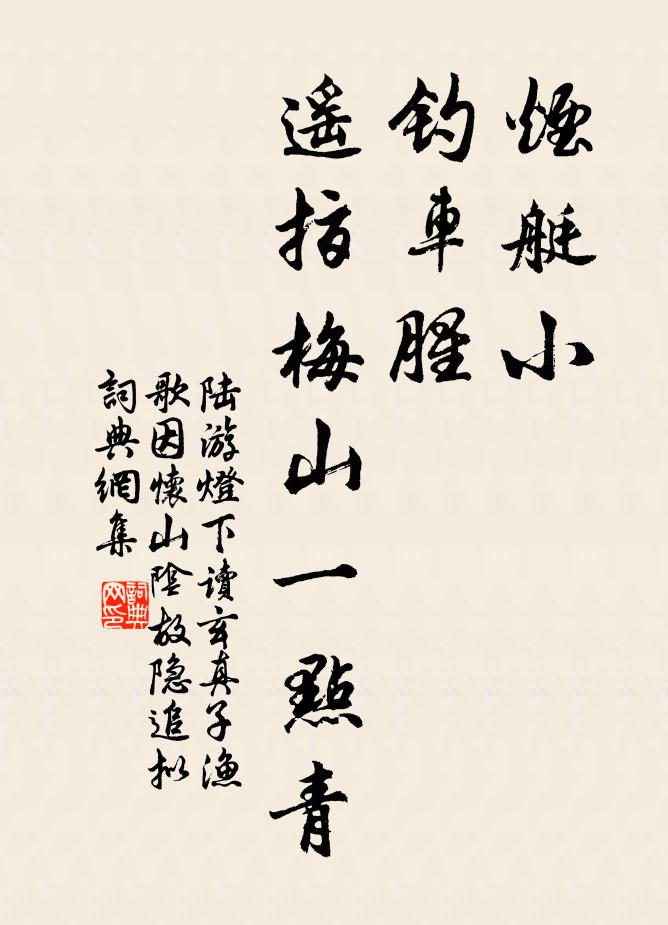 煙艇小
釣車腥
遥指梅山一點青
陸游燈下讀玄真子漁
歌因懷山陰故隱追擬
詞典網集
詞典
网印